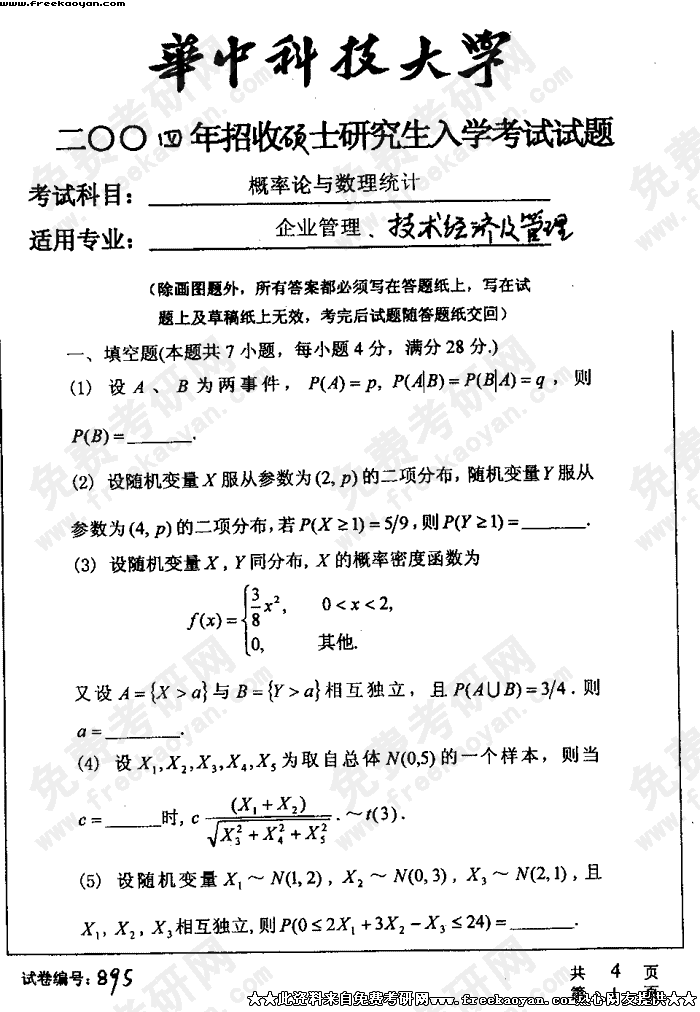 www.freekaoyan.com
華中科技大学
二〇〇四年招收硕士研究生入学考试试题
考试科目: 概率论与数理统计
适用专业: 企业管理、技术经济及管理
(除画图题外，所有答案都必须写在答题纸上，写在试
题上及草稿纸上无效，考完后试题随答题纸交回)
一、填空题(本题共7小题，每小题4分，满分28分.)
(1) 设 A、B 为两事件，P(A)=p, P(A|B)=P(B|A)=q，则
P(B)=______.
(2) 设随机变量 X 服从参数为(2, p)的二项分布，随机变量Y服从
参数为(4, p)的二项分布,若P(X≥1)=5/9,则P(Y≥1)=______.
(3) 设随机变量 X, Y 同分布, X 的概率密度函数为
f(x)={3/8 x², 0<x<2,
0, 其他.
又设 A={X>a}与 B={Y>a}相互独立，且 P(A∪B)=3/4. 则
a=______.
(4) 设 X₁,X₂,X₃,X₄,X₅ 为取自总体 N(0,5) 的一个样本，则当
c=______时, c (X₁+X₂)/√(X₃²+X₄²+X₅²).~t(3).
(5) 设随机变量 X₁~N(1,2), X₂~N(0,3), X₃~N(2,1), 且
X₁, X₂, X₃相互独立,则P(0≤2X₁+3X₂-X₃≤24)=______.
试卷编号: 895
共 4 页
第 1 页
★★此资料来自免费考研网www.freekaoyan.com热心网友提供★★